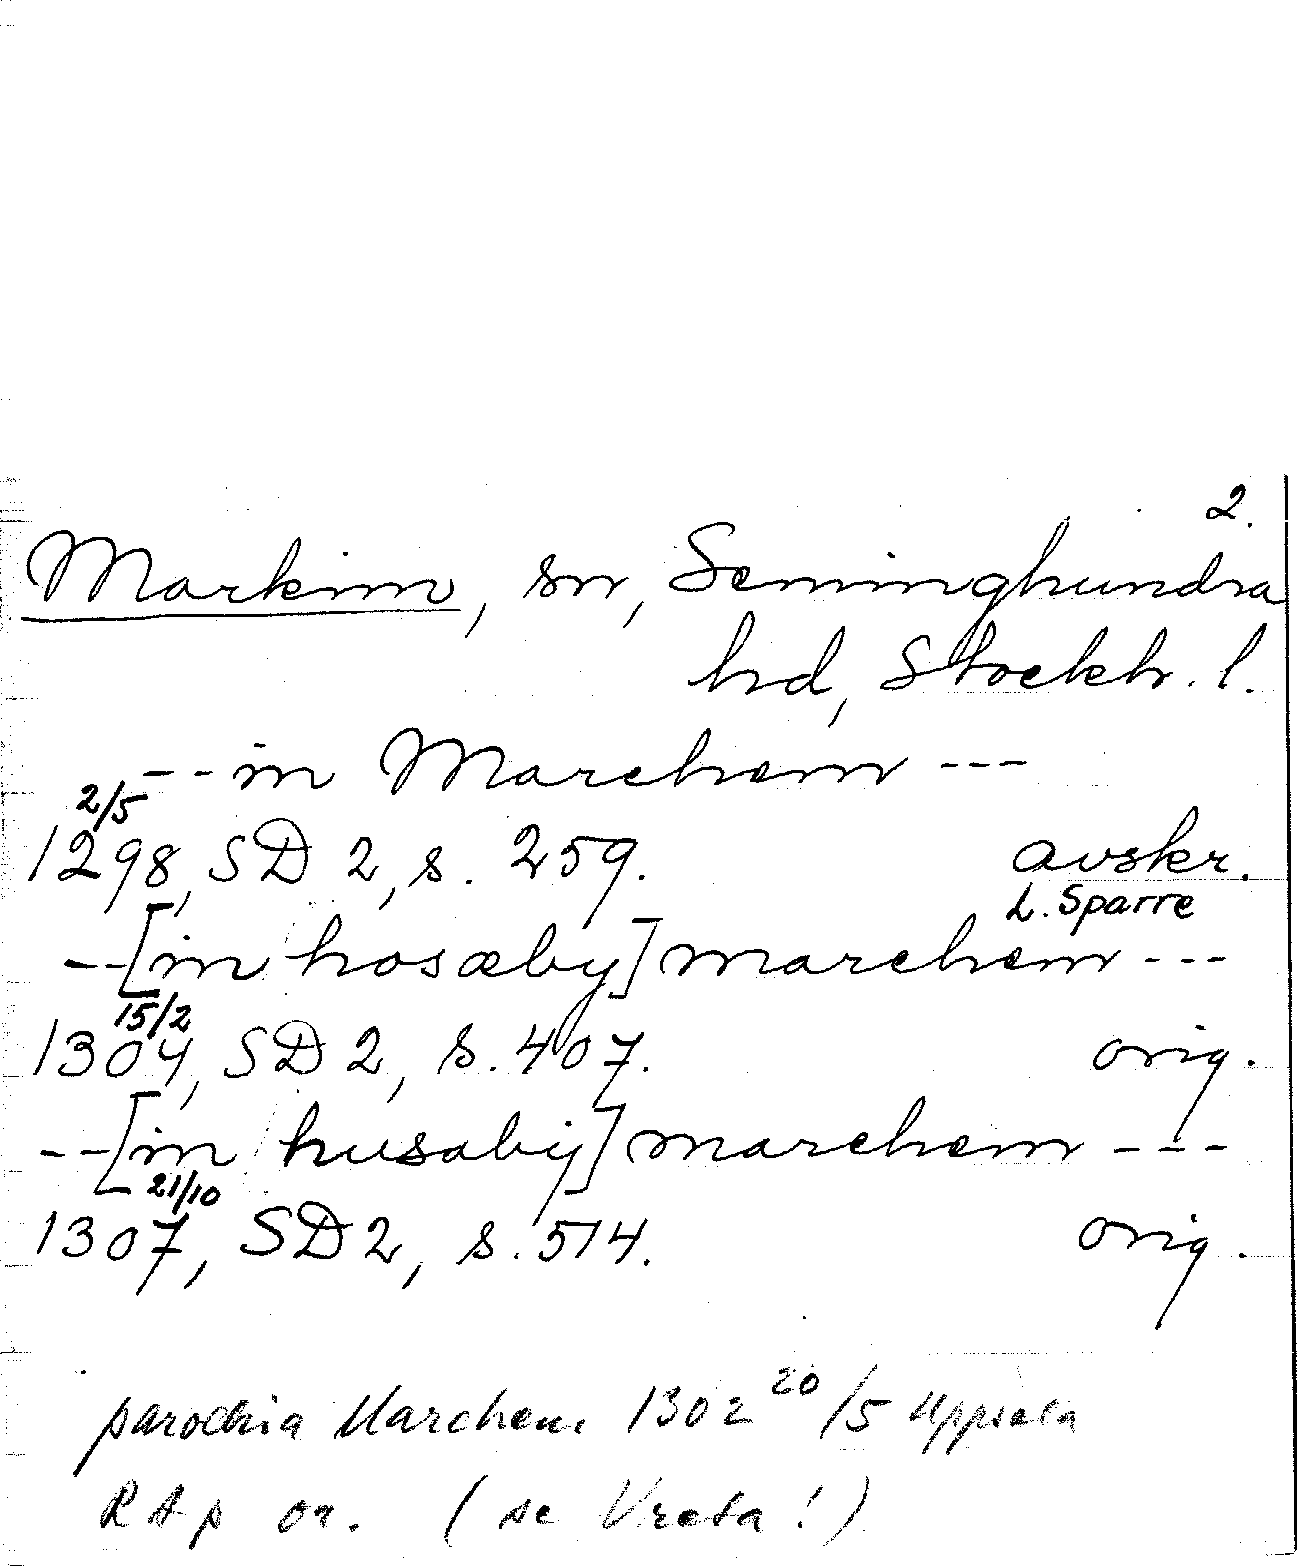 2.
Markim, sn, Seminghundra
hd, Stockh. l.
--in Marchem ---
2/5
1298, SD 2, s. 259. avskr.
L. Sparre
--[in hosæby] marchem ---
15/2
1304, SD 2, s. 407. orig.
--[in husaby] marchem ---
21/10
1307, SD 2, s. 514. orig.
parochia Marchem 1302 20/5 Uppsala
RAp or. (se Vreta!)